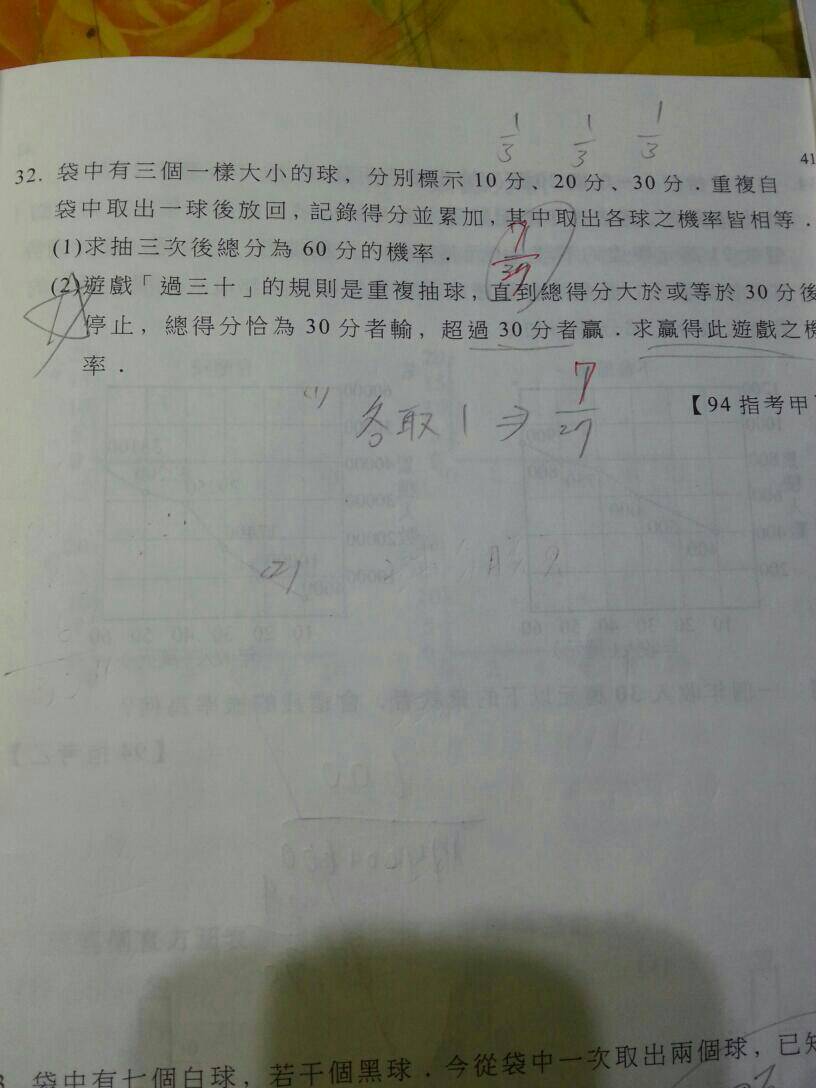 1/3 1/3 1/3
41
32. 袋中有三個一樣大小的球，分別標示 10 分、20 分、30 分．重複自
袋中取出一球後放回，記錄得分並累加，其中取出各球之機率皆相等．
(1)求抽三次後總分為 60 分的機率．
7/27
(2)遊戲「過三十」的規則是重複抽球，直到總得分大於或等於 30 分後
停止，總得分恰為 30 分者輸，超過 30 分者贏．求贏得此遊戲之機
率．
【94 指考甲】
(1) 各取 1 ⇒ 7/27
(2)
袋中有七個白球，若干個黑球．今從袋中一次取出兩個球，已知